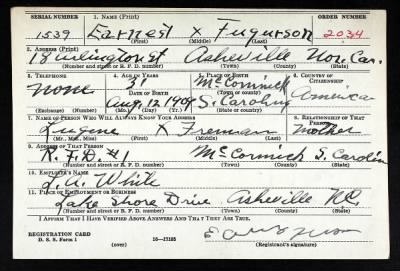 SERIAL NUMBER 1. NAME (Print) ORDER NUMBER
1539 Earnest X Fugurson 2034
(First) (Middle) (Last)
2. ADDRESS (Print)
18 Asheville Nor. Car.
(Number and street or R. F. D. number) (Town) (County) (State)
3. TELEPHONE 4. AGE IN YEARS 5. PLACE OF BIRTH 6. COUNTRY OF CITIZENSHIP
none 31 McCormick
DATE OF BIRTH
Aug. 12 1909 S. Carolina America
(Exchange) (Number) (Mo.) (Day) (Yr.) (State or county)
7. NAME OF PERSON WHO WILL ALWAYS KNOW YOUR ADDRESS 8. RELATIONSHIP OF THAT PERSON
Lugene X Freeman Mother
(Mr., Mrs., Miss) (First) (Middle) (Last)
9. ADDRESS OF THAT PERSON
R. F. D. #1 McCormick S. Carolin
(Number and street or R. F. D. number) (Town) (County) (State)
10. EMPLOYER'S NAME
L. A. White
11. PLACE OF EMPLOYMENT OR BUSINESS
Lake Shore Drive Asheville N.C.
(Number and street or R. F. D. number) (Town) (County) (State)
I AFFIRM THAT I HAVE VERIFIED ABOVE ANSWERS AND THAT THEY ARE TRUE.
REGISTRATION CARD
D. S. S. Form 1 (over) 16—17105 (Registrant's signature)